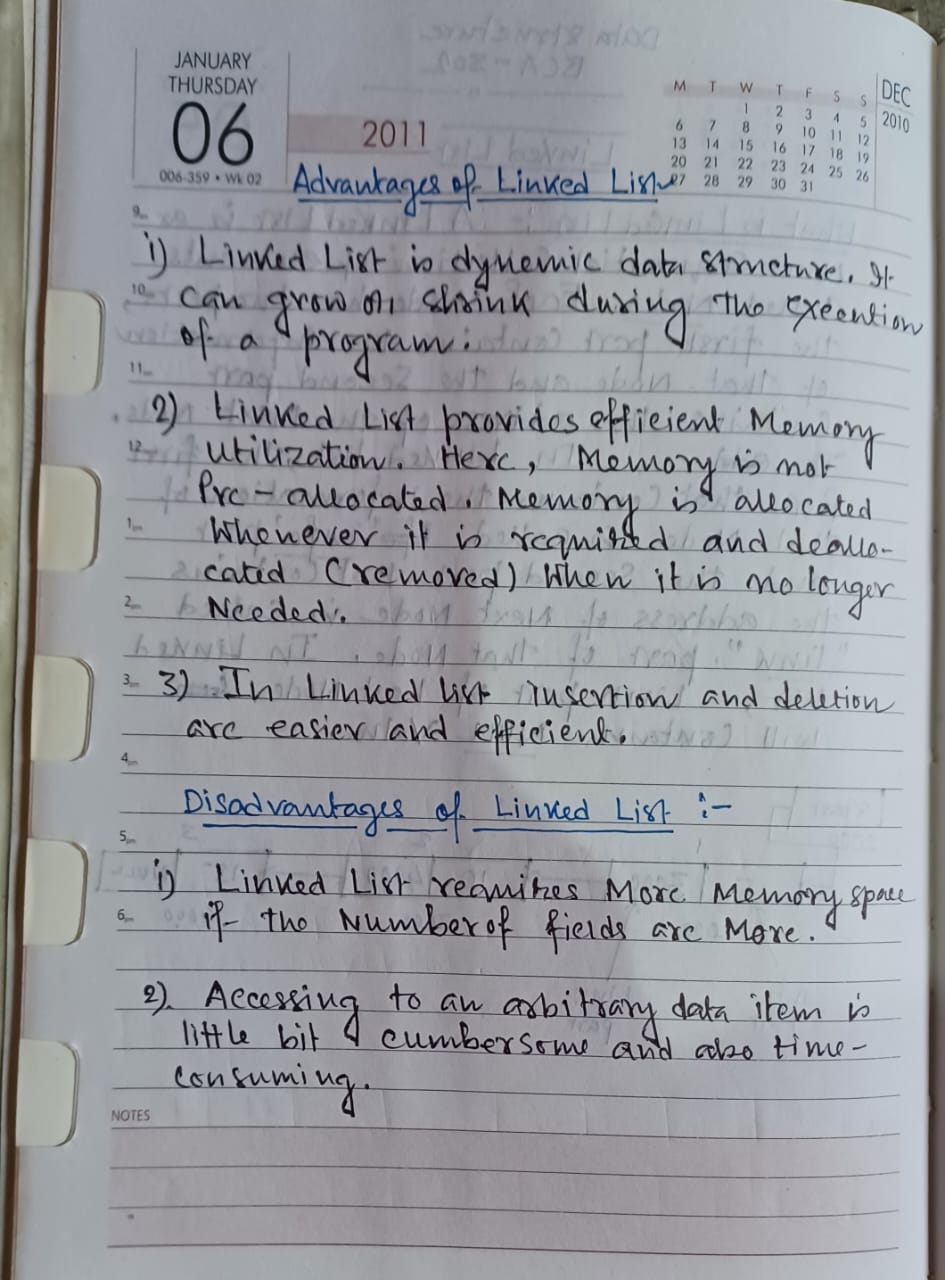 JANUARY
THURSDAY
06
006-359 • Wk 02
2011
M T W T F S S
1 2 3 4 5
6 7 8 9 10 11 12
13 14 15 16 17 18 19
20 21 22 23 24 25 26
27 28 29 30 31
DEC
2010
Advantages of Linked List
9
i) Linked List is dynemic data structure. It
10
can grow or shrink during the execution
of a program.
11
2) Linked List provides efficient Memory
12
Utilization. Here, Memory is not
Pre-allocated. Memory is allocated
1
Whenever it is required and deallo-
cated (removed) When it is no longer
2
Needed.
3
3) In Linked list insertion and deletion
are easier and efficient.
4
Disadvantages of Linked List :-
5
i) Linked List requires More Memory space
6
if the Number of fields are More.
2). Accessing to an arbitrary data item is
little bit cumbersome and also time-
consuming.
NOTES